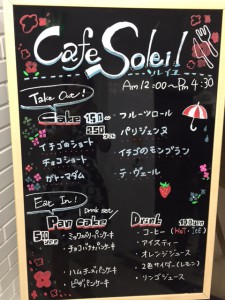 Cafe Soleil
ソレイユ
Am 12:00~Pm 4:30
Take Out!
Cake 150~
250 yen
・イチゴのショート
・チョコショート
・ガトーマダム
・フルーツロール
・パリジェンヌ
・イチゴのモンブラン
・テ・ヴェール
Eat In!
Pan cake
Drink set
・チョコバナナパンケーキ
・ハムチーズパンケーキ
・ピザパンケーキ
Drink
・コーヒー (HOT・ICE)
・アイスティー
・オレンジジュース
・2色サイダー(レモン)
・リンゴジュース